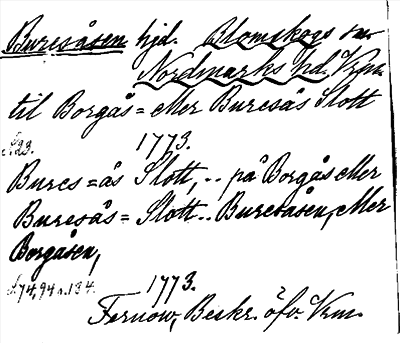 Buresåsen hjd. Blomskogs sn
Nordmarks hd. Vrm.
til Borgås= eller Buresås Slott
1773.
s. 23.
Bures=ås Slott, .. på Borgås eller
Buresås= Slott .. Buresåsen, eller
Borgåsen,
s. 74, 94 o. 134.
1773.
Fernow, Beskr. öfv. Vrm.